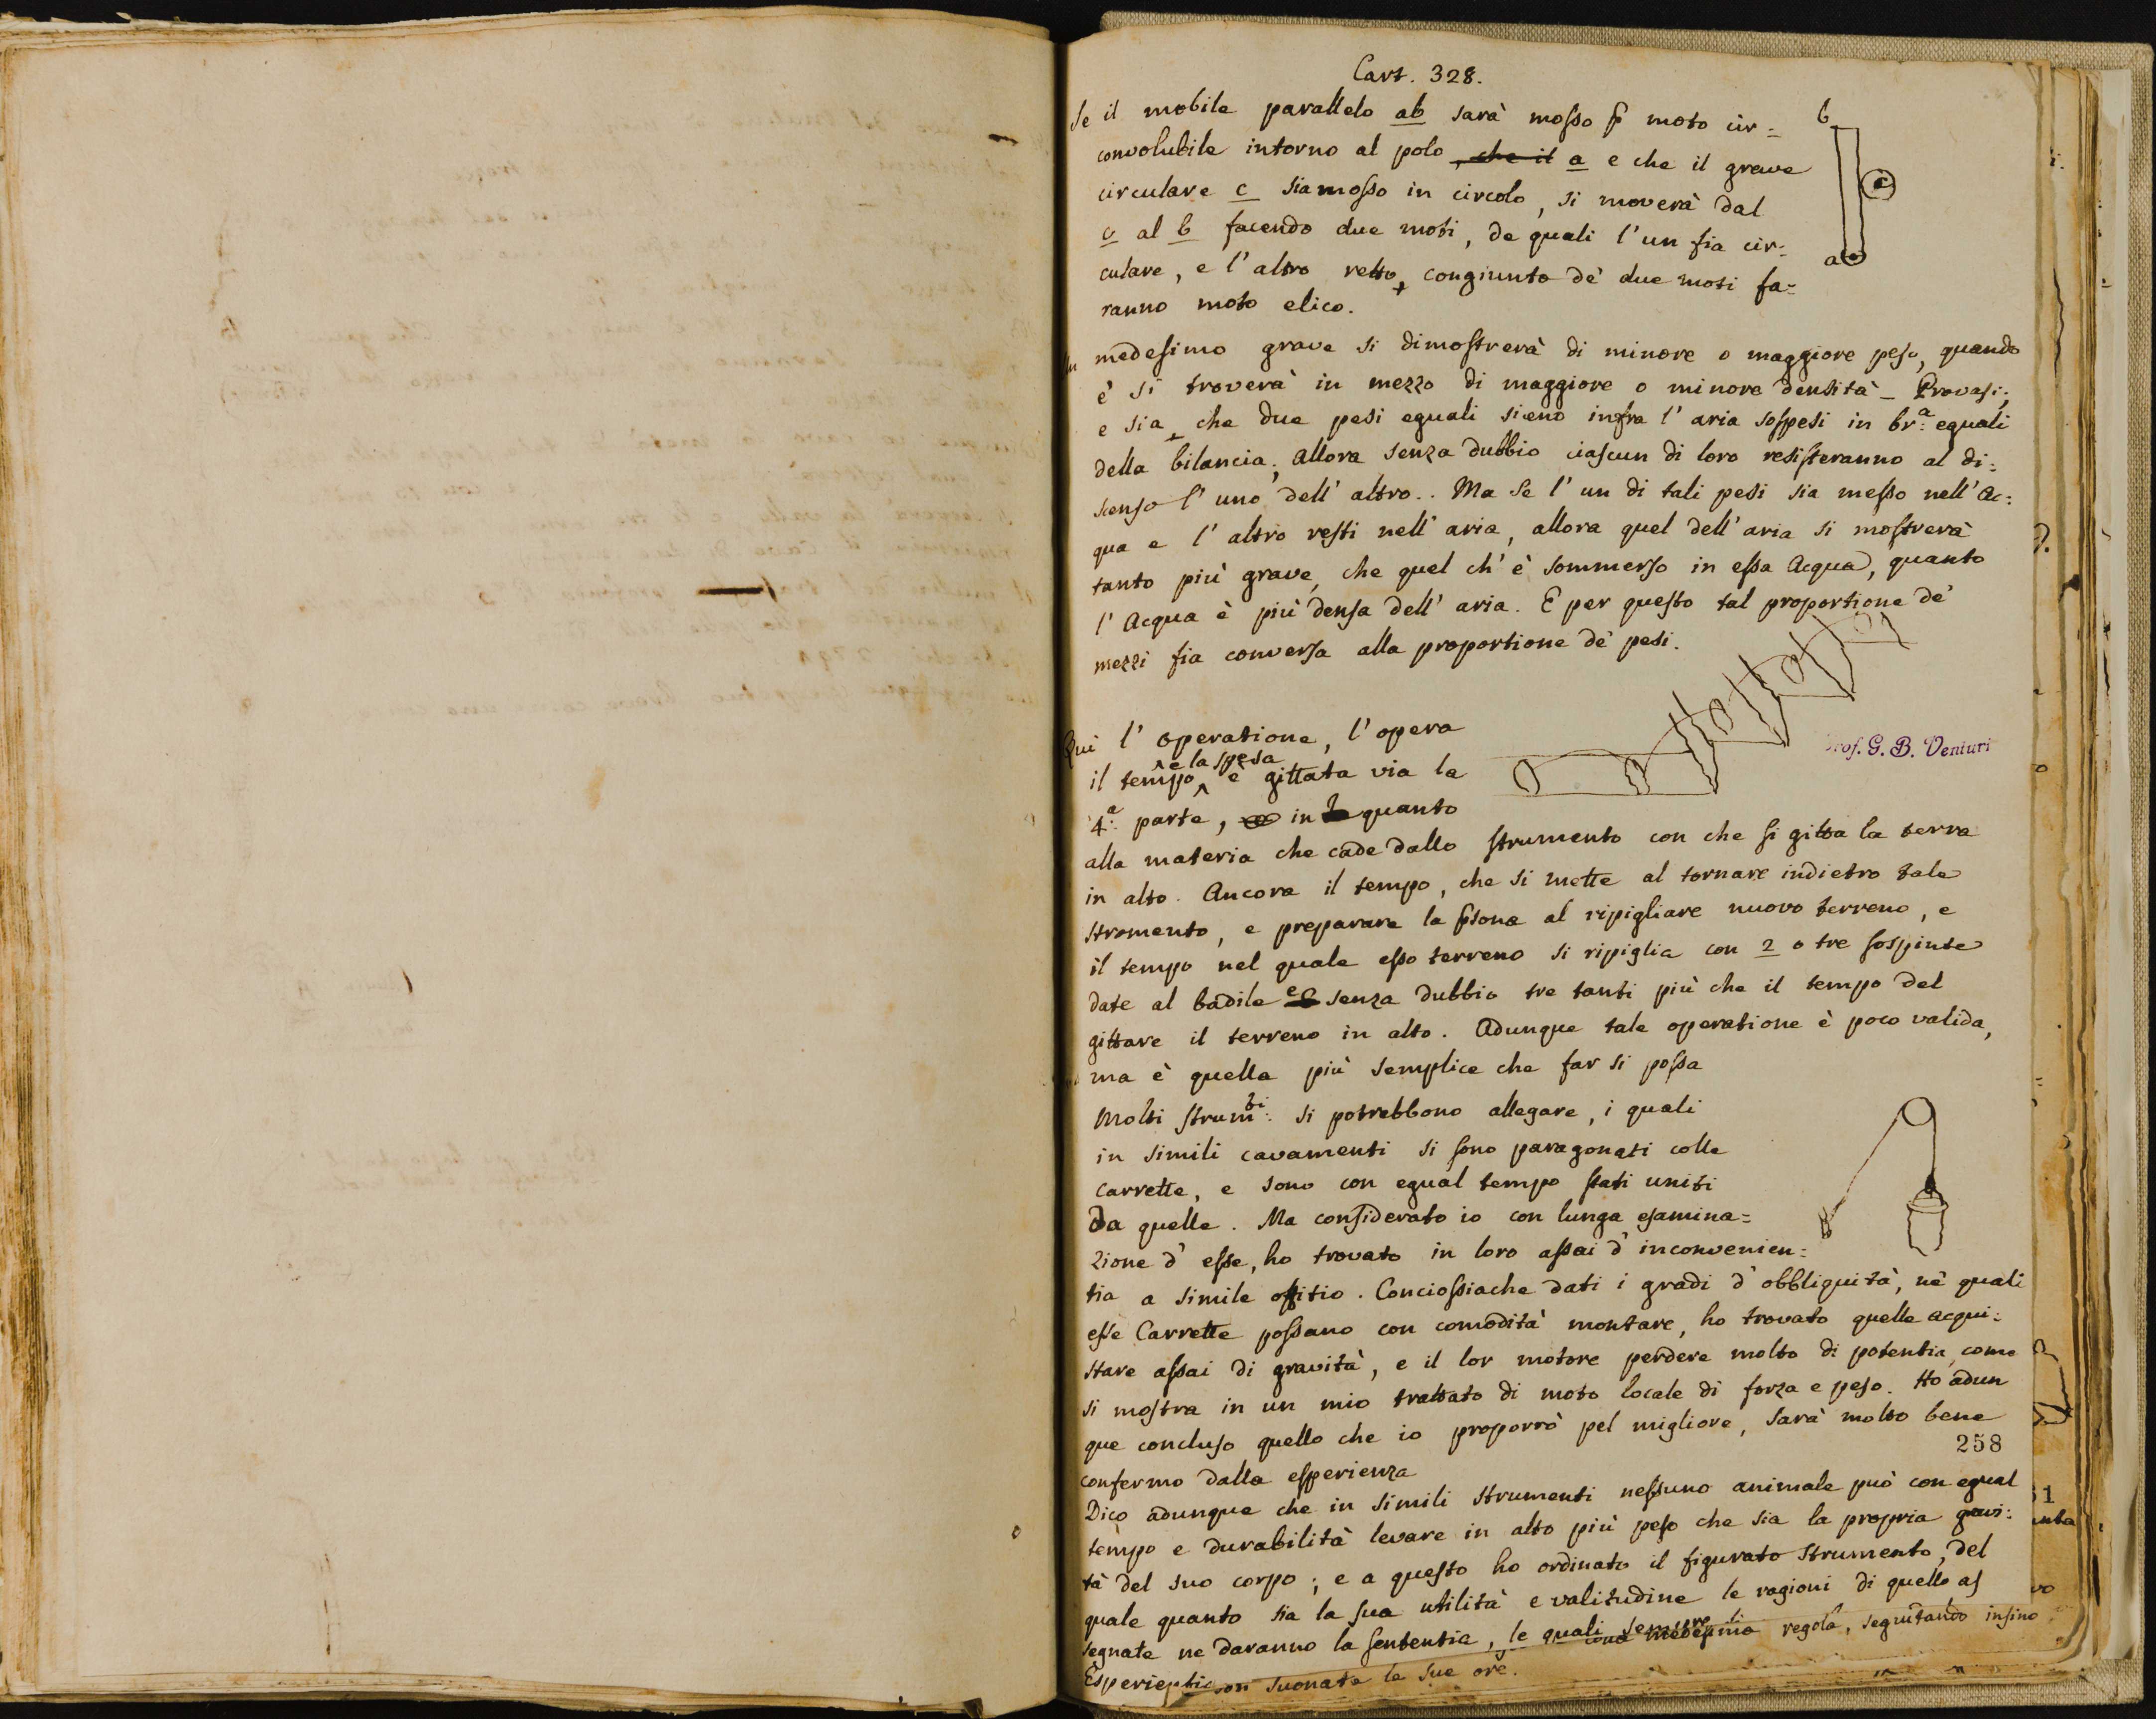 Cart. 328.
Se il mobile parallelo ab sarà mosso p moto cir=
convolubile intorno al polo, che il a e che il grave
circulare c sia mosso in circolo, si moverà dal
c al b facendo due moti, de quali l'un fia cir=
culare, e l'altro retto, congiunto de' due moti fa=
ranno moto elico.
b
c
a
Un medesimo grave si dimostrerà di minore o maggiore peso, quando
e' si troverà in mezzo di maggiore o minore densità – Provasi;
e sia, che due pesi eguali sieno infra l'aria sospesi in br.a eguali
della bilancia; allora senza dubbio ciascun di loro resisteranno al di=
scenso l'uno dell'altro.. Ma se l'un di tali pesi sia messo nell'ac=
qua e l'altro resti nell'aria, allora quel dell'aria si mostrerà
tanto più grave, che quel ch'è sommerso in essa Acqua, quanto
l'Acqua è più densa dell'aria. E per questo tal proportione de'
mezzi fia conversa alla proportione de' pesi.
Prof. G. B. Venturi
Qui l'operatione, l'opera
il tempo e la spesa è gittata via la
4.a parte, in quanto
alla materia che cade dallo strumento con che si gitta la terra
in alto. Ancora il tempo, che si mette al tornare indietro tale
stromento, e preparare la psona al ripigliare nuovo terreno, e
il tempo nel quale esso terreno si ripiglia con 2 o tre sospinte
date al badile e senza dubbio tre tanti più che il tempo del
gittare il terreno in alto. Adunque tale operatione è poco valida,
ma è quella più semplice che far si possa
Molti strum.ti si potrebbono allegare, i quali
in simili cavamenti si sono paragonati colle
carrette, e sono con egual tempo stati uniti
da quelle. Ma considerato io con lunga esamina=
zione d'esse, ho trovato in loro assai d'inconvenien=
tia a simile offitio. Conciossiache dati i gradi d'obbliquità, ne' quali
esse Carrette possano con comodità montare, ho trovato quelle acqui=
stare assai di gravità, e il lor motore perdere molto di potentia, come
si mostra in un mio trattato di moto locale di forza e peso. Ho adun
que concluso quello che io proporrò pel migliore, sarà molto bene
258
confermo dalla esperienza
Dico adunque che in simili strumenti nessuno animale può con egual
tempo e durabilità levare in alto più peso che sia la propria gravi=
tà del suo corpo; e a questo ho ordinato il figurato strumento, del
quale quanto sia la sua utilità e valitudine le ragioni di quello as
segnate ne daranno la sententia, le quali sempre
medesima regola, seguitando insino
Esperientia
son suonate le sue ore.